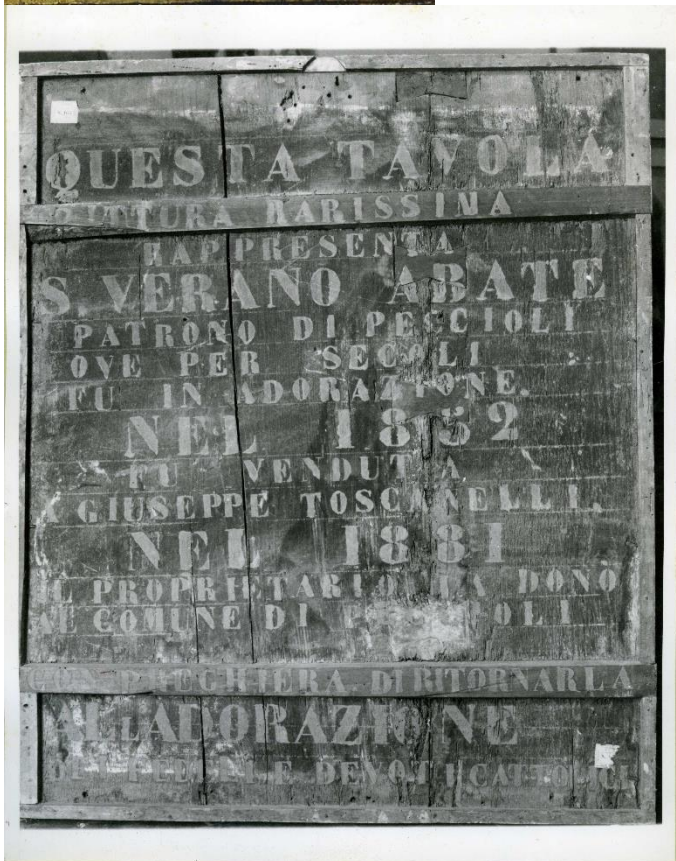 QUESTA TAVOLA
PITTURA RARISSIMA
RAPPRESENTA
S. VERANO ABATE
PATRONO DI PECCIOLI
OVE PER SECOLI
FU IN ADORAZIONE.
NEL 1852
FU VENDUTA
A GIUSEPPE TOSCANELLI.
NEL 1881
IL PROPRIETARIO LA DONÒ
AL COMUNE DI PECCIOLI
CON PREGHIERA DI RITORNARLA
ALL ADORAZIONE
DEI FEDELI E DEVOTI CATTOLICI